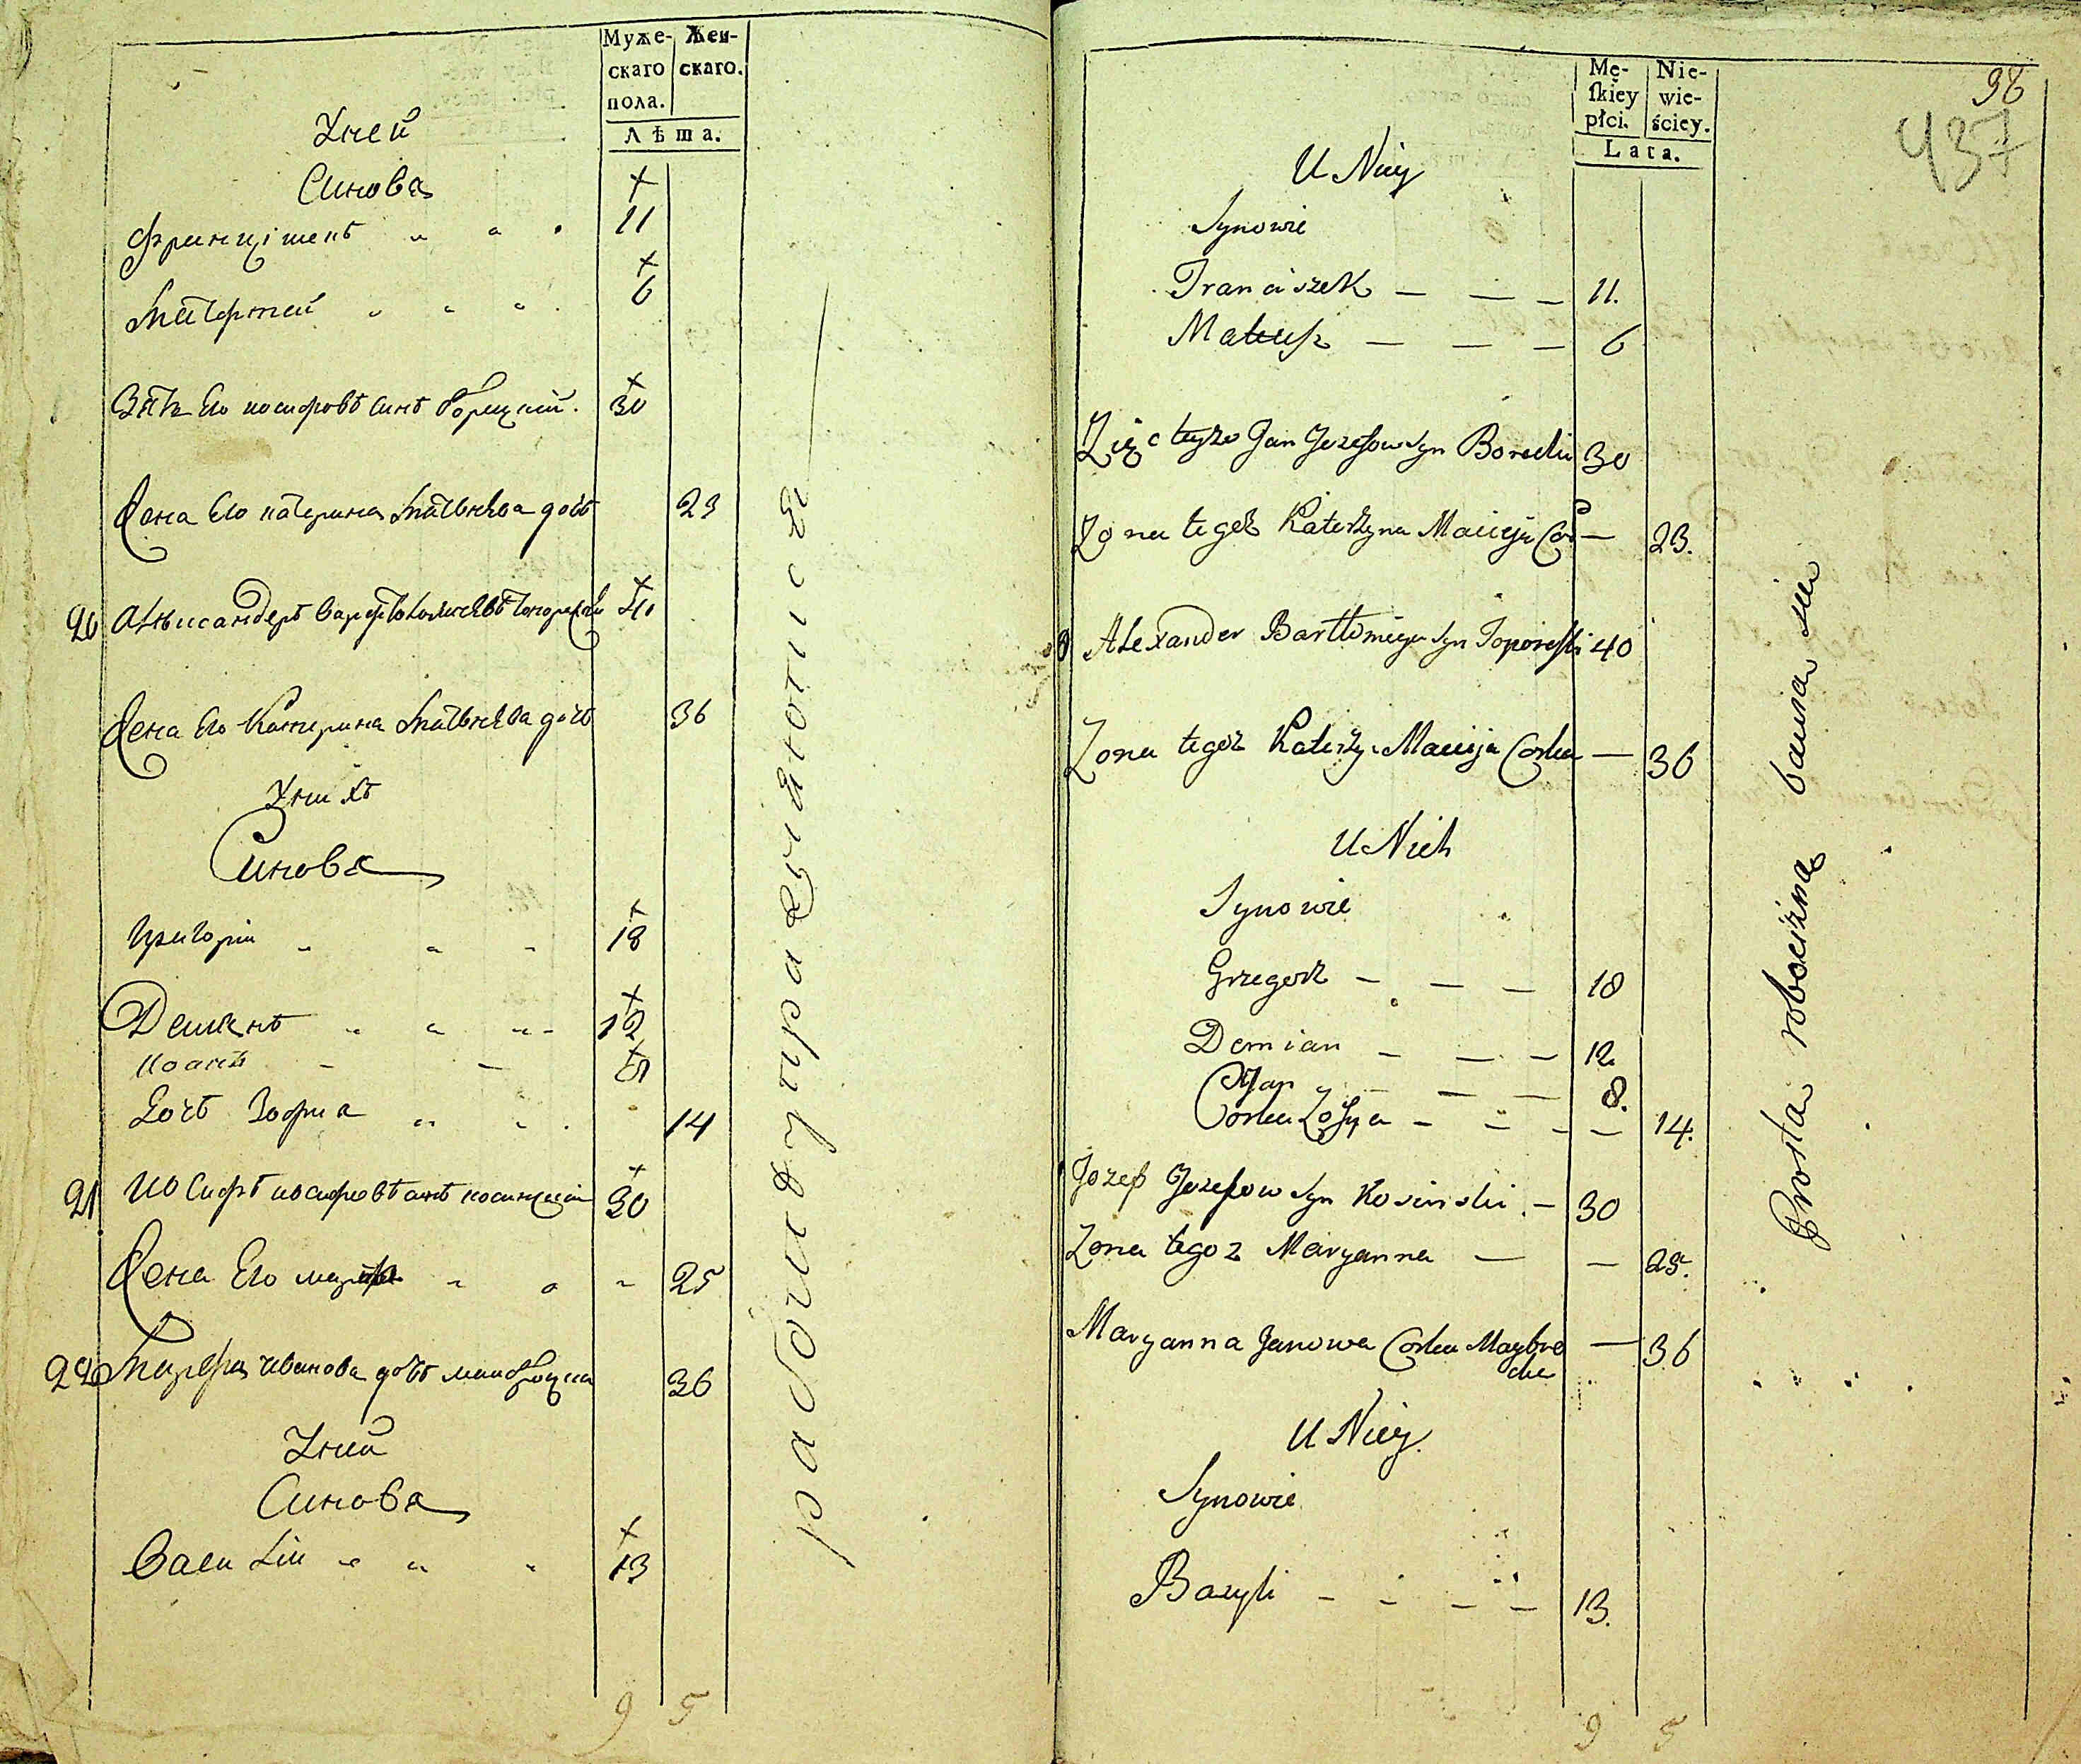 Муже-
скаго
пола.
Жен-
скаго.
Лѣта.
Уней
Синовя
Францішекъ 11
Матфтей 6
Зять Его иосифовъ синъ борецкий. 30
Жена Его катерина Матвиева дочь 23
20 Александеръ варфтоломиевъ топорески 40
Жена Его Катерина Матвиева дочь 36
Унихъ
Синовя
Григорiи 18
Демянъ 12
Иоанъ 8
Дочь Зофиа 14
21 Иосифъ иосифовъ синъ косинский 30
Жена Его 25
22 Иванова дочь 36
Уней
Синовя
Василiи 13
9 5
работи отправляются
Mę-
ſkiey
płci.
Nie-
wie-
ściey.
Lata.
98
437
U Niey
Synowie
Franciszek — — — 11.
Mateusz — — — 6
Zięć teyże Jan Jozefow syn Borecki 30
Zona tegoż Katerżyna Macieja Cor — 23.
Alexander Bartłomieja syn Toporeski 40
Zona tegoż Katerży: Macieja Corka — 36
U Nich
Synowie
Grzegorż — — — 18
Demian — — — 12.
Jan — — — 8.
Corka Zofya — — — — 14.
Jozef Jozefow syn Kosinski. — 30
Zona tegoz Maryanna — — 25.
Maryanna Janowa Corka Maybro
cka — 36
U Niey.
Synowie
Bazyli — — — — 13.
9 5
Prosta robocizna bawia sie